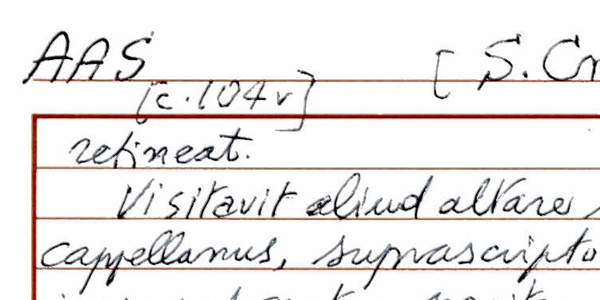 AAS [S.Cr
[c.104v]
retineat.
Visitavit aliud altare
cappellanus, suprascripto